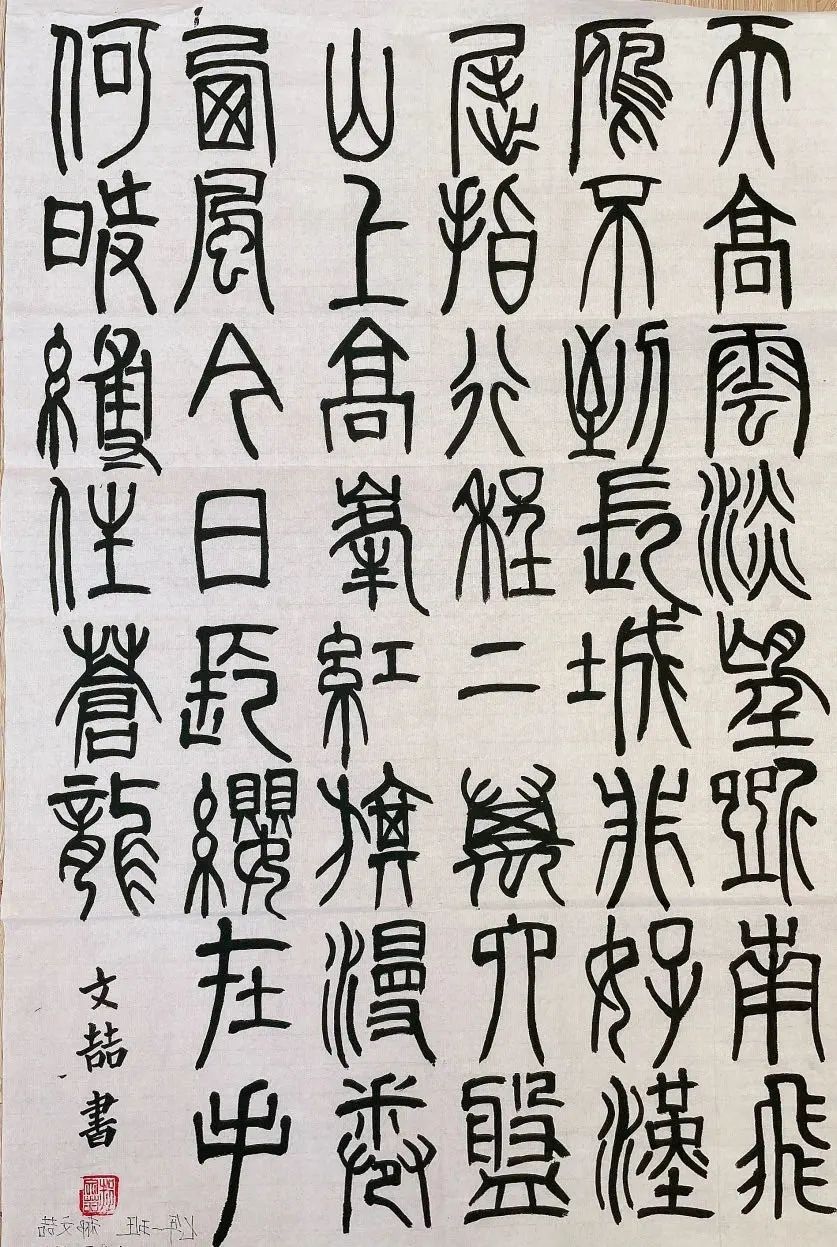 天高雲淡望斷南飛
雁不到長城非好漢
屈指行程二萬六盤
山上高峯紅旗漫卷
西風今日長纓在手
何時縛住蒼龍
文喆書